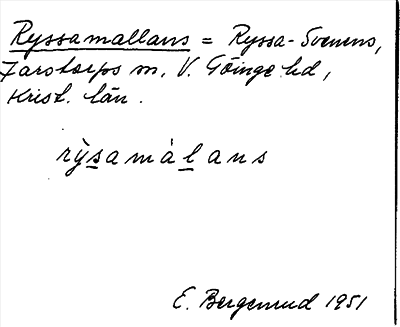 Ryssamallans = Ryssa-Svenens,
Farstorps sn, V. Göinge hd,
Krist. län.
rỳsamàlans
E. Bergenrud 1951